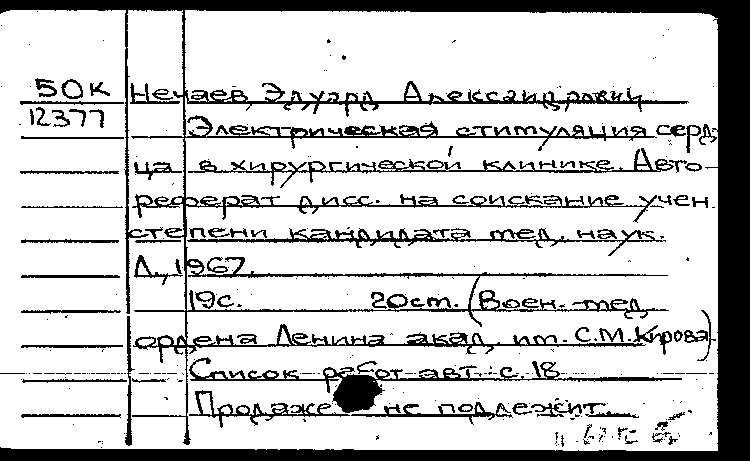 50К Нечаев, Эдуард Александрович
12377
Электрическая стимуляция серд-
ца в хирургической клинике. Авто-
реферат дисс. на соискание учен.
степени кандидата мед. наук.
Л., 1967.
19с. 20см. (Воен.-мед.
ордена Ленина акад. им. С.М.Кирова).
Список работ авт.: с. 18
Продаже не подлежит.